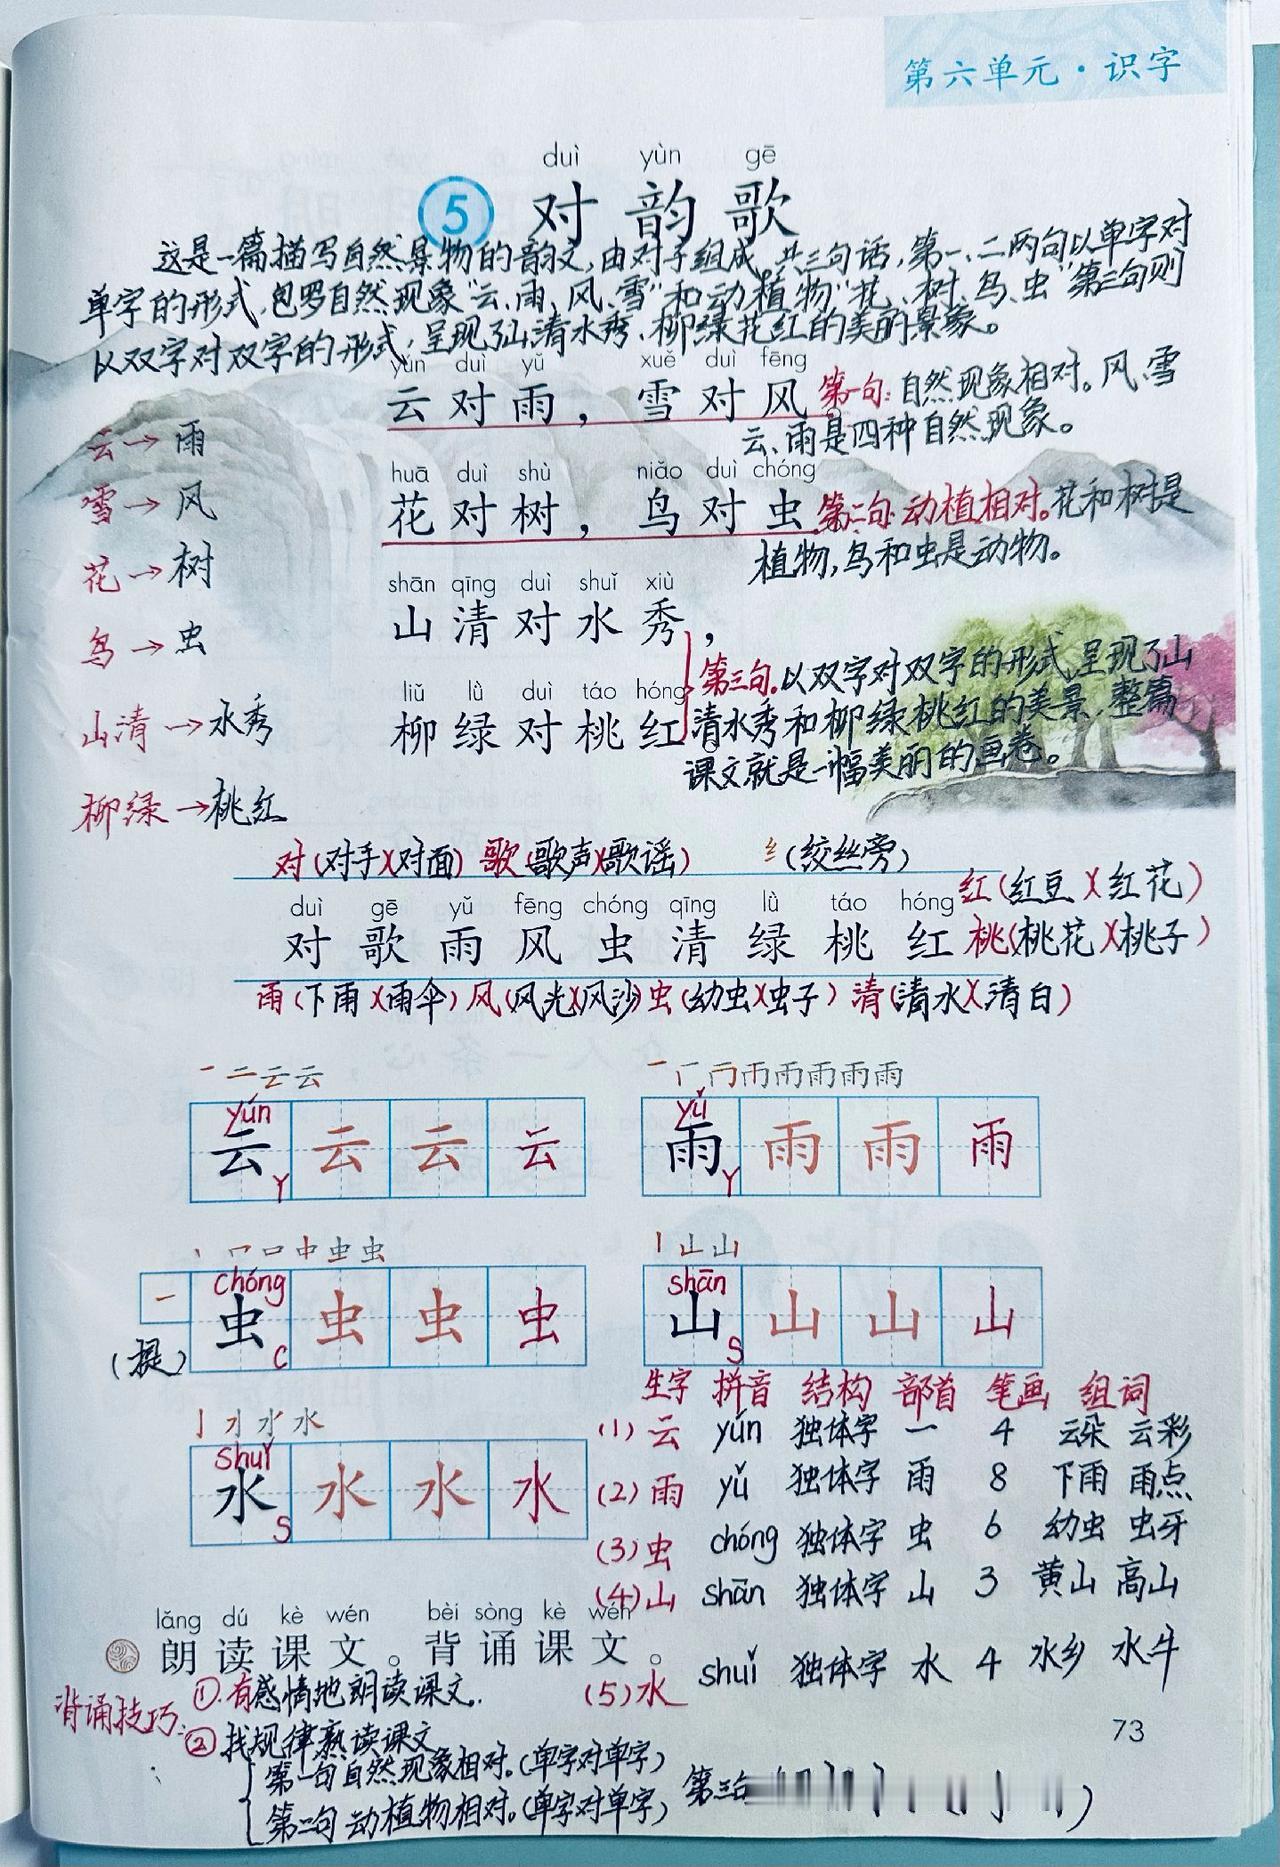 第六单元·识字
duì yùn gē
5 对韵歌
这是一篇描写自然景物的韵文,由对子组成。共三句话,第一、二两句以单字对
单字的形式,包罗自然现象“云、雨、风、雪”和动植物“花、树、鸟、虫”第三句则
以双字对双字的形式,呈现了山清水秀、柳绿花红的美丽景象。
yún duì yǔ xuě duì fēng
云对雨，雪对风。
第一句:自然现象相对。风、雪
云、雨是四种自然现象。
huā duì shù niǎo duì chóng
花对树，鸟对虫。
第二句:动植相对。花和树是
植物,鸟和虫是动物。
shān qīng duì shuǐ xiù
山清对水秀，
liǔ lǜ duì táo hóng
柳绿对桃红。
第三句。以双字对双字的形式,呈现了山
清水秀和柳绿桃红的美景,整篇
课文就是一幅美丽的画卷。
云→雨
雪→风
花→树
鸟→虫
山清→水秀
柳绿→桃红
对(对手)(对面) 歌(歌声)(歌谣) 纟(绞丝旁)
红(红豆)(红花)
duì gē yǔ fēng chóng qīng lǜ táo hóng
对歌雨风虫清绿桃红
桃(桃花)(桃子)
雨(下雨)(雨伞) 风(风光)(风沙) 虫(幼虫)(虫子) 清(清水)(清白)
yún
云 云 云 云
Y
yǔ
雨 雨 雨 雨
Y
chóng
虫 虫 虫 虫
C
(提)
shān
山 山 山 山
S
shuǐ
水 水 水 水
S
生字 拼音 结构 部首 笔画 组词
(1)云 yún 独体字 一 4 云朵 云彩
(2)雨 yǔ 独体字 雨 8 下雨 雨点
(3)虫 chóng 独体字 虫 6 幼虫 虫牙
(4)山 shān 独体字 山 3 黄山 高山
(5)水 shuǐ 独体字 水 4 水乡 水牛
lǎng dú kè wén bèi sòng kè wén
朗读课文。背诵课文。
背诵技巧:①.有感情地朗读课文.
②找规律熟读课文
第一句自然现象相对。(单字对单字)
第二句动植物相对。(单字对单字)
第三句
73